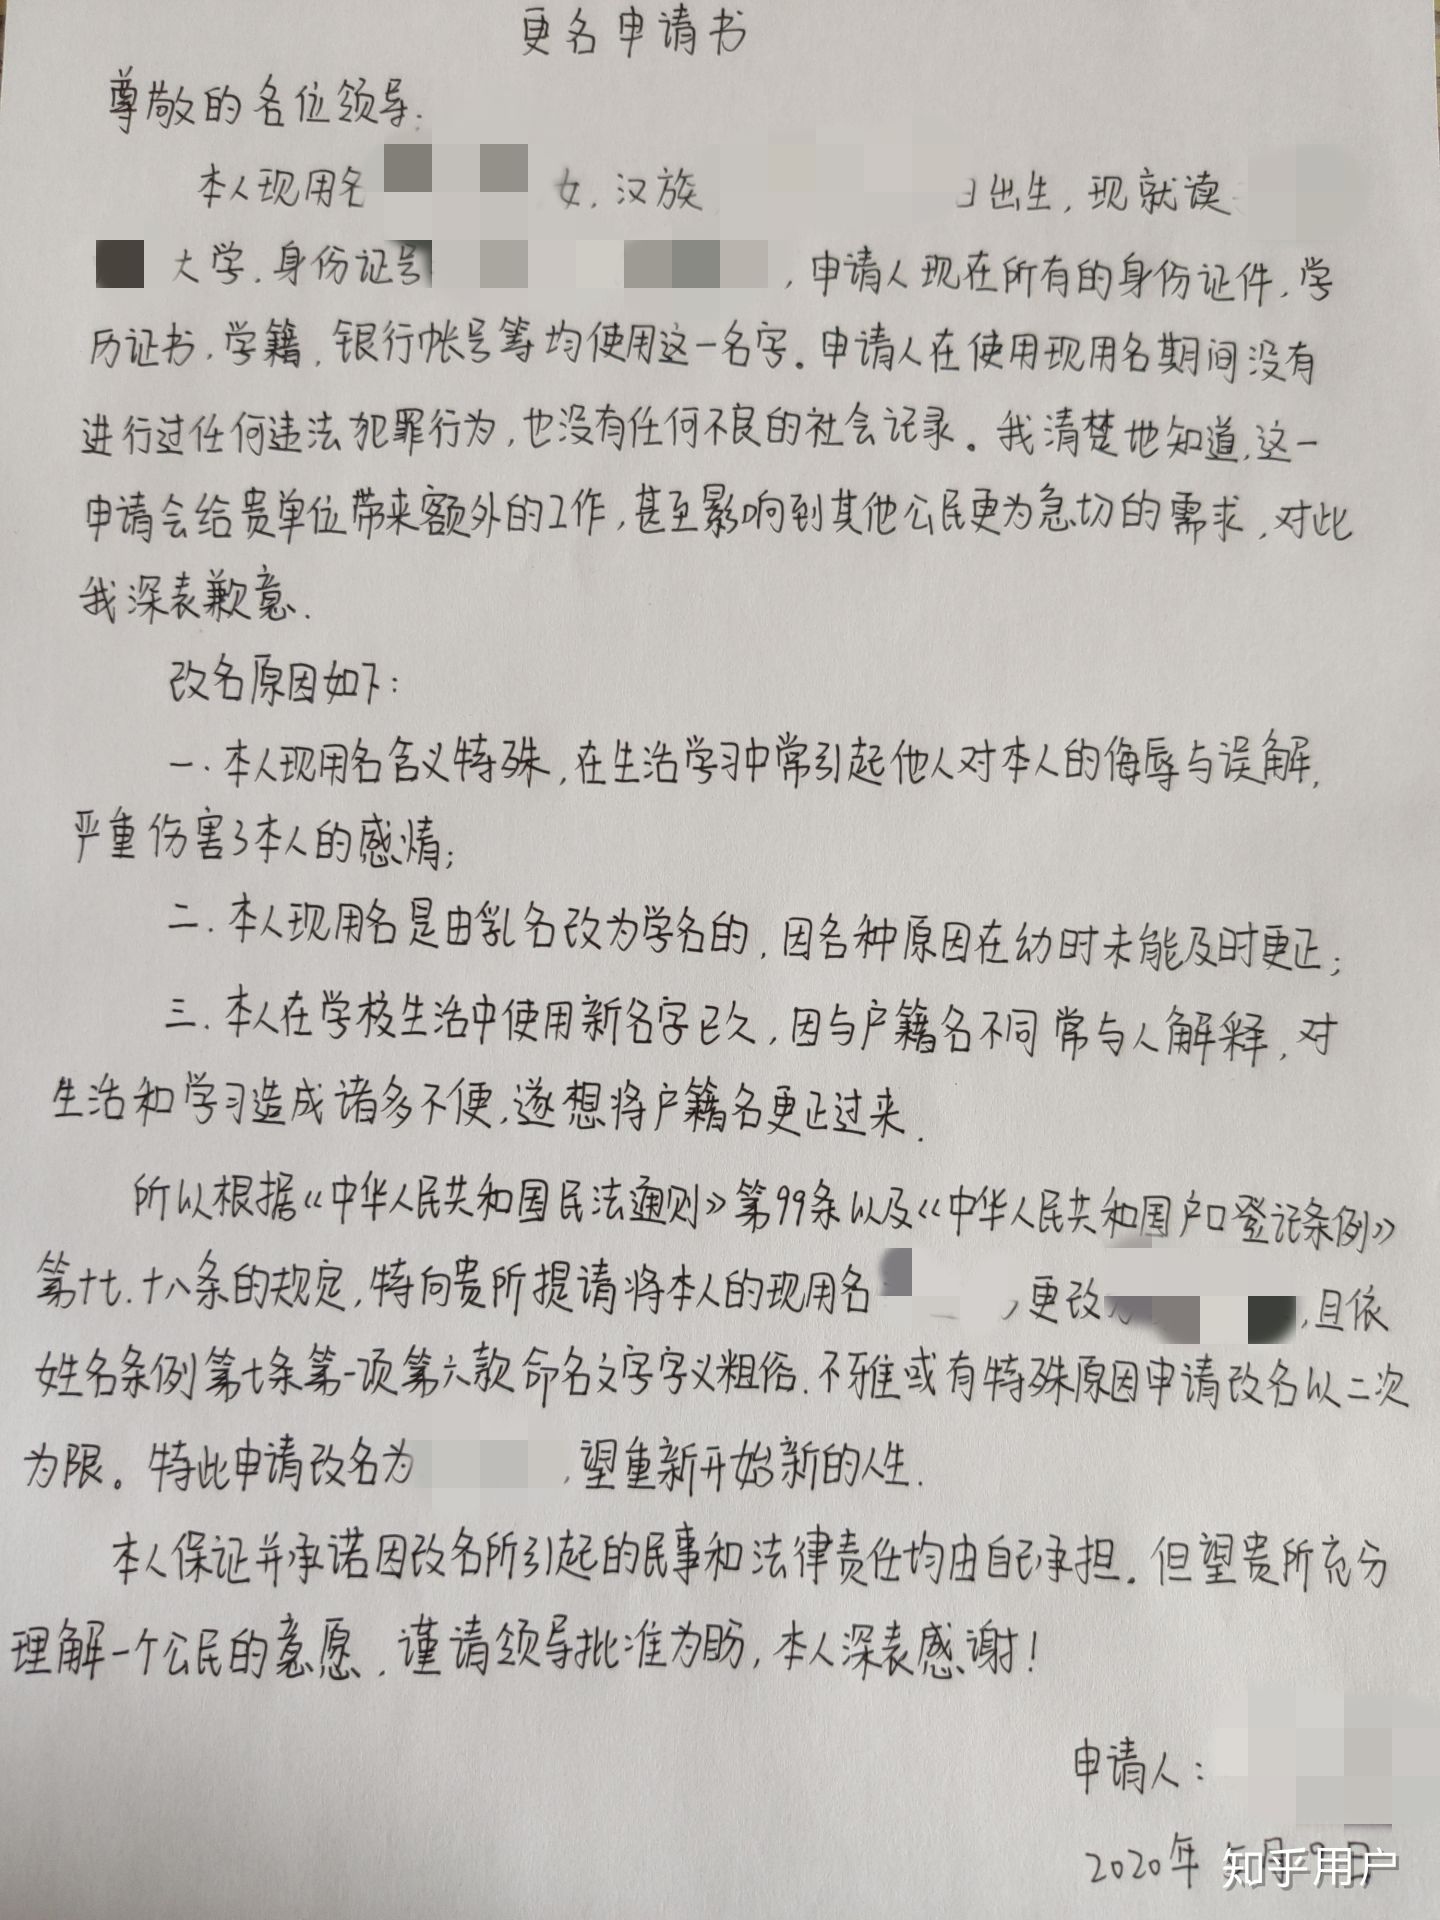 更名申请书
尊敬的各位领导:
本人现用名 女,汉族 日出生,现就读
大学,身份证号 ,申请人现在所有的身份证件,学
历证书,学籍,银行帐号等均使用这一名字。申请人在使用现用名期间没有
进行过任何违法犯罪行为,也没有任何不良的社会记录。我清楚地知道,这一
申请会给贵单位带来额外的工作,甚至影响到其他公民更为急切的需求,对此
我深表歉意.
改名原因如下:
一.本人现用名含义特殊,在生活学习中常引起他人对本人的侮辱与误解,
严重伤害了本人的感情;
二.本人现用名是由乳名改为学名的,因各种原因在幼时未能及时更正;
三.本人在学校生活中使用新名字已久,因与户籍名不同常与人解释,对
生活和学习造成诸多不便,遂想将户籍名更正过来.
所以根据《中华人民共和国民法通则》第99条以及《中华人民共和国户口登记条例》
第十七.十八条的规定,特向贵所提请将本人的现用名 更改 ,且依
姓名条例第七条第一项第六款命名文字字义粗俗.不雅或有特殊原因申请改名以二次
为限。特此申请改名为 ,望重新开始新的人生.
本人保证并承诺因改名所引起的民事和法律责任均由自己承担。但望贵所充分
理解一个公民的意愿,谨请领导批准为盼,本人深表感谢!
申请人:
2020年 月 日
知乎用户